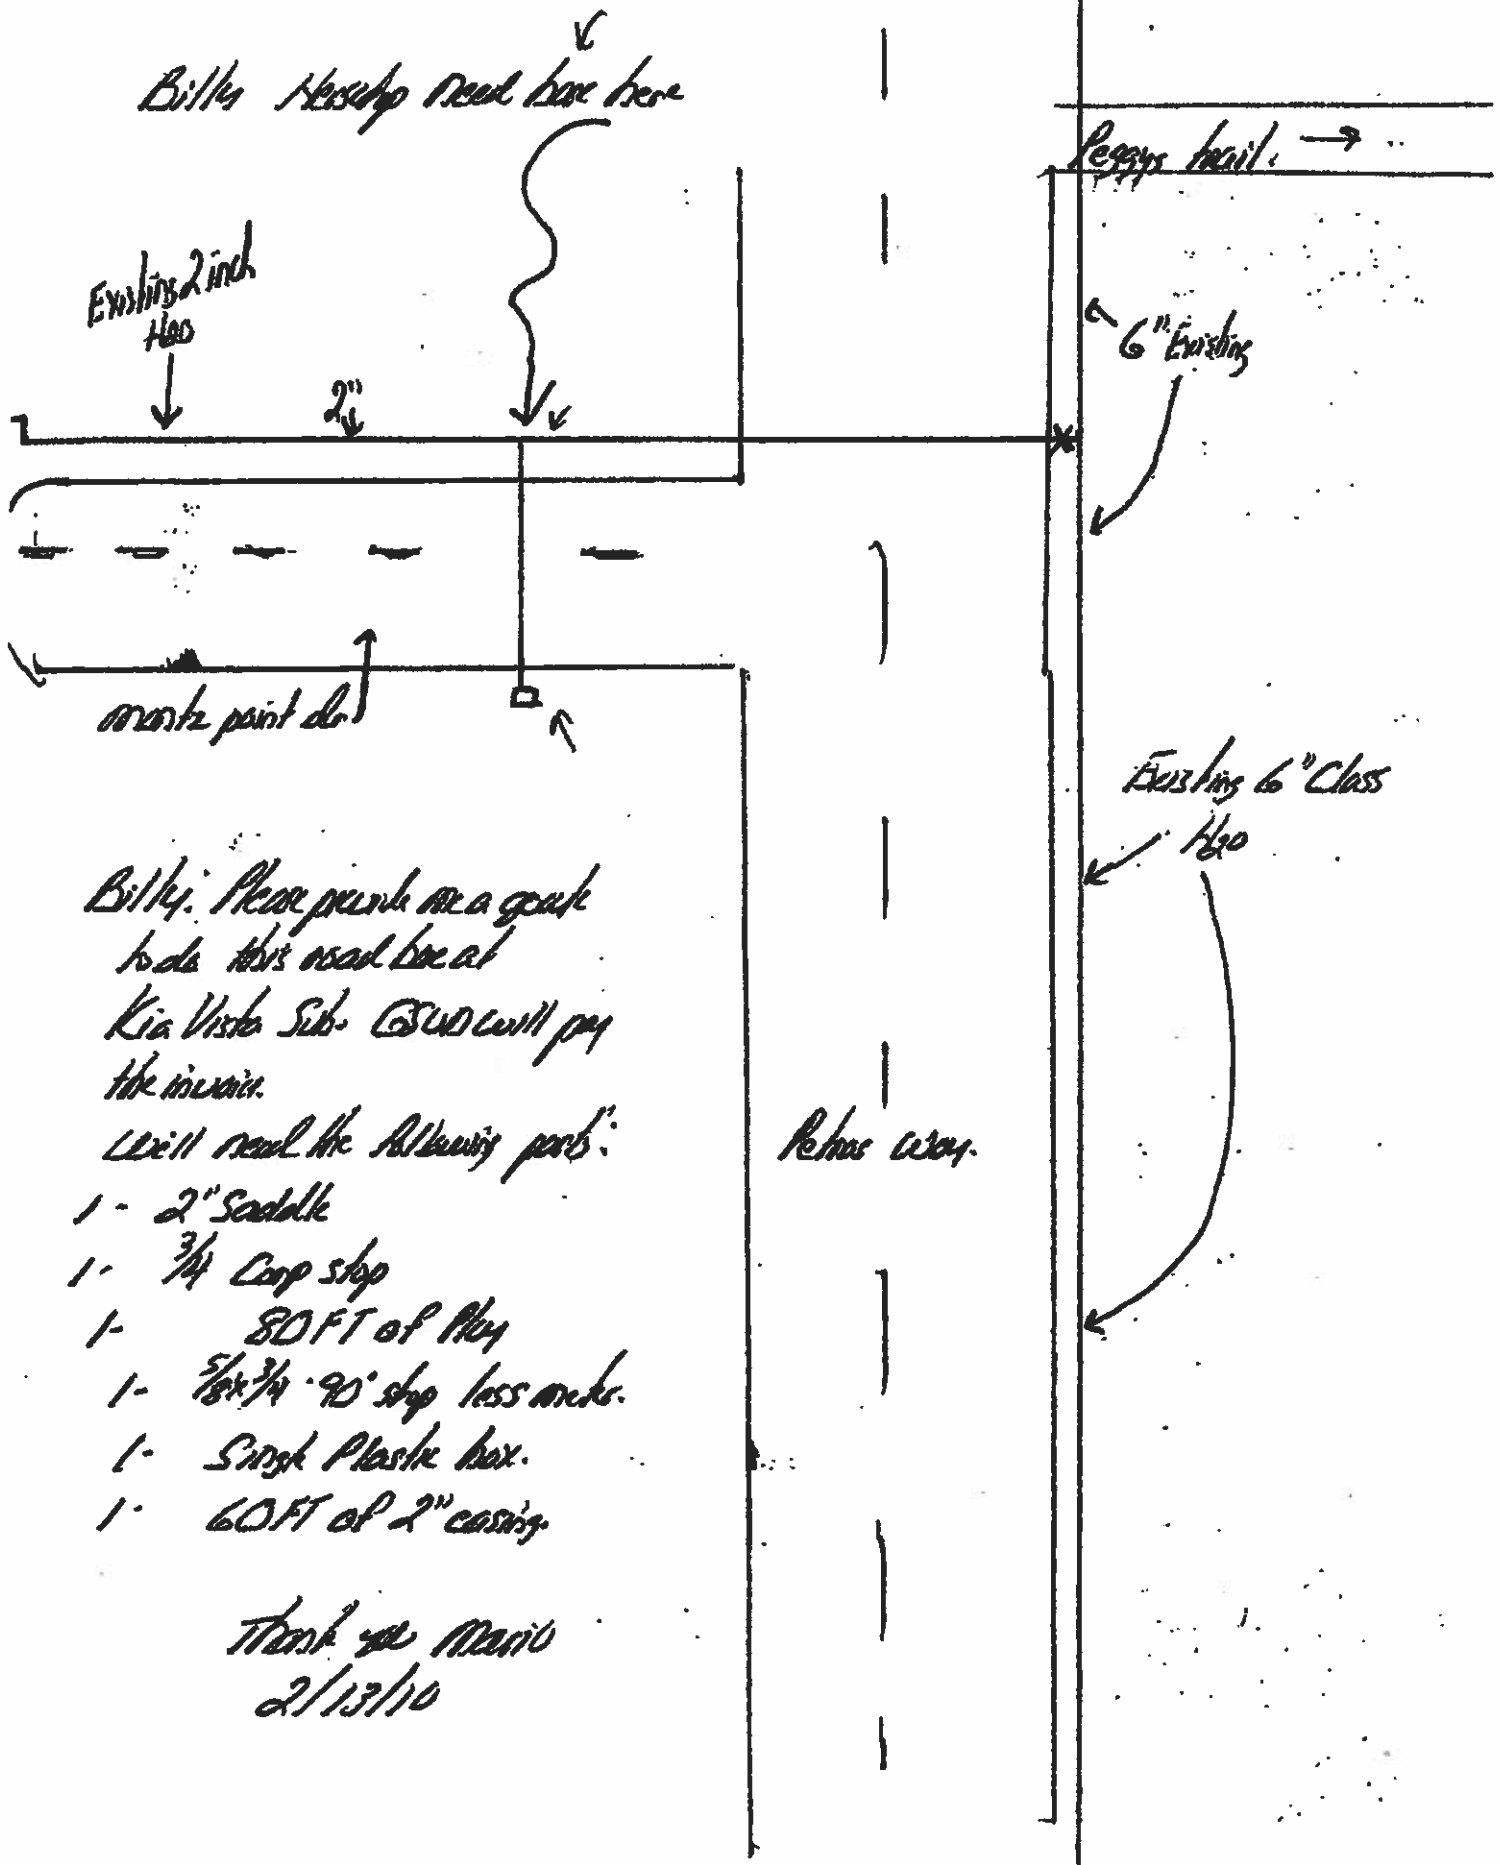 Billy need bore here
Peggys trail.
Existing 2 inch
H2O
6" Existing
2"
point dr.
Existing 6" Class
H2O
Billy. Please provide me a quote
to do this road bore at
Kia Vista Sub. GSUD will pay
the invoice.
will need the following parts:
Petras Way.
1- 2" Saddle
1- 3/4 Corp stop
1- 80FT of Ploy
1- 5/8x3/4 90° stop less meter.
1- Single Plastic box.
1- 60FT of 2" casing.
Thank you Mario
2/13/10